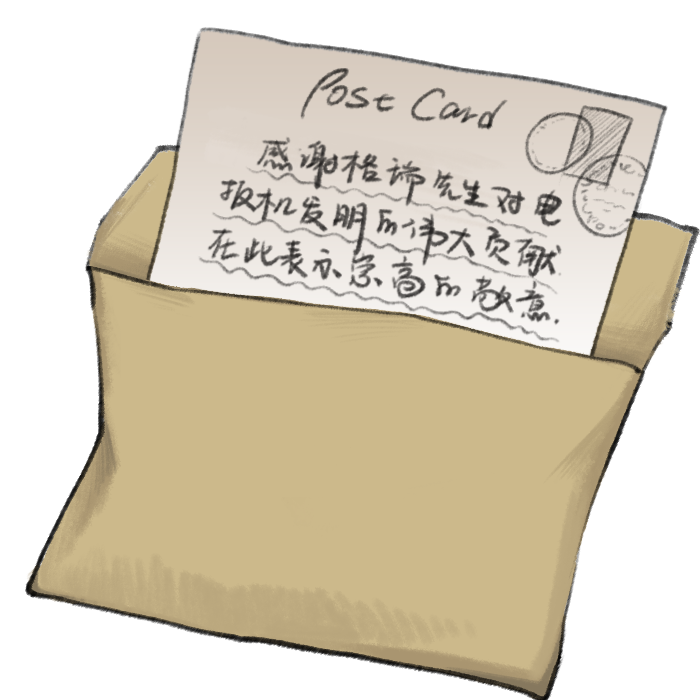 Post Card
感谢格瑞先生对电
报机发明的伟大贡献
在此表示崇高的敬意.